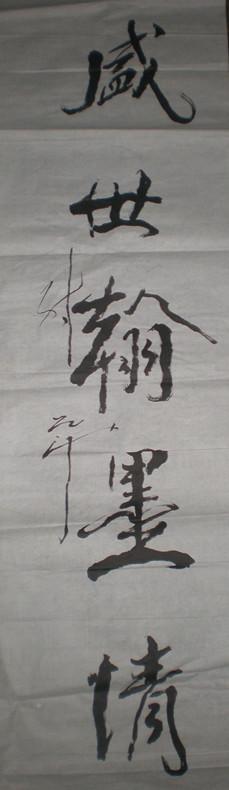 盛世翰墨情